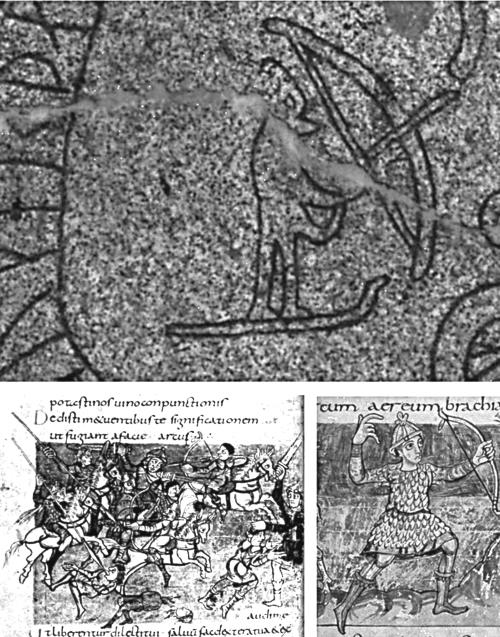 potestinos uino conpunctionis
Dedisti metuentibus te significationem
ut fugiant a facie arcus
audime
Ut liberentur dilecti tui saluum fac dextera tua &
tum aereum brachia